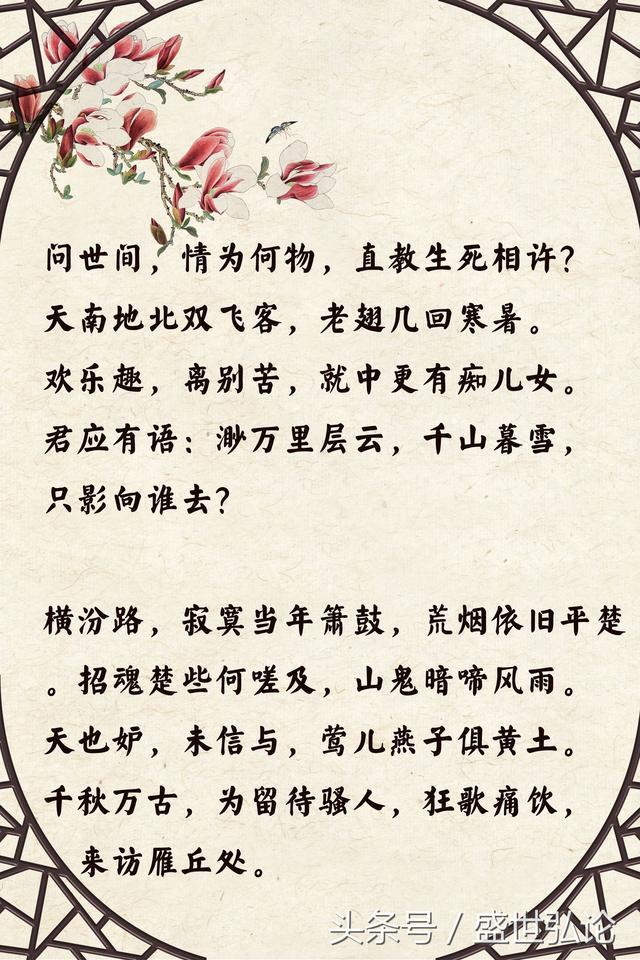 问世间，情为何物，直教生死相许？
天南地北双飞客，老翅几回寒暑。
欢乐趣，离别苦，就中更有痴儿女。
君应有语：渺万里层云，千山暮雪，
只影向谁去？
横汾路，寂寞当年箫鼓，荒烟依旧平楚
。招魂楚些何嗟及，山鬼暗啼风雨。
天也妒，未信与，莺儿燕子俱黄土。
千秋万古，为留待骚人，狂歌痛饮，
来访雁丘处。
头条号 / 盛世弘论